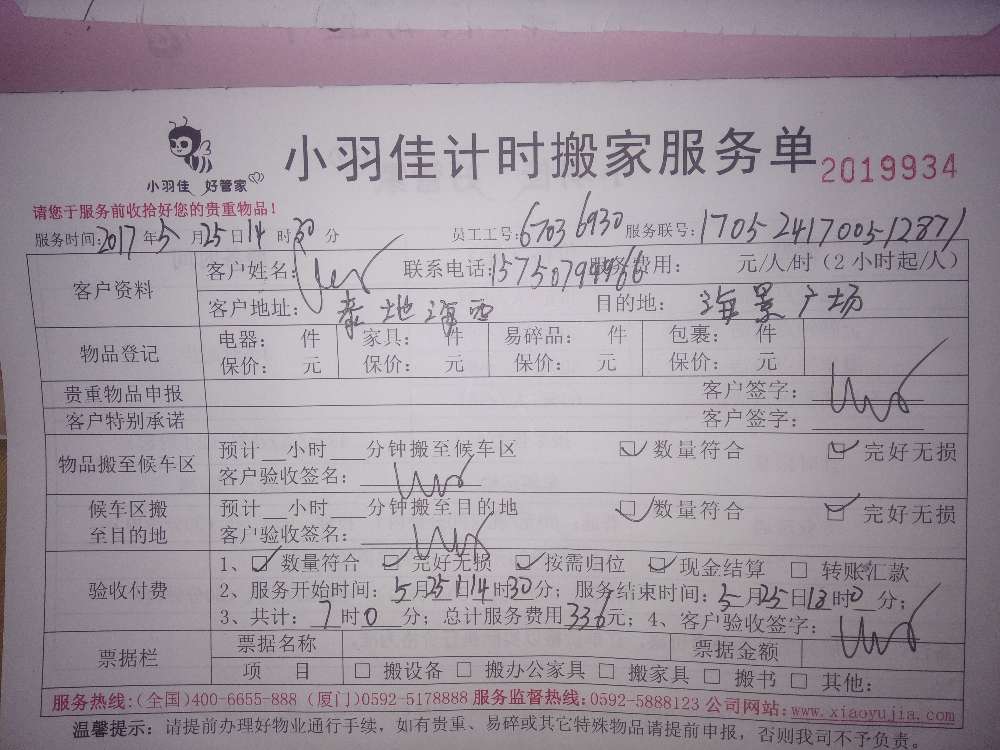 小羽佳 好管家
小羽佳计时搬家服务单 2019934
请您于服务前收拾好您的贵重物品!
服务时间:2017年5月25日14时30分 员工工号:6703 6930 服务联号:170524170051 2871
客户资料 客户姓名: 联系电话: 服务费用: 元/人/时(2小时起/人)
客户地址: 泰地海西 目的地: 海景广场
物品登记 电器: 件 家具: 件 易碎品: 件 包裹: 件
保价: 元 保价: 元 保价: 元 保价: 元
贵重物品申报 客户签字:
客户特别承诺 客户签字:
物品搬至候车区 预计__小时___分钟搬至候车区 ☑ 数量符合 ☑ 完好无损
客户验收签名:
候车区搬至目的地 预计__小时___分钟搬至目的地 ☑ 数量符合 ☑ 完好无损
客户验收签名:
验收付费 1、☑ 数量符合 ☑ 完好无损 ☑ 按需归位 ☑ 现金结算 □ 转账汇款
2、服务开始时间:5月25日14时30分;服务结束时间:5月25日18时0分;
3、共计:7时0分;总计服务费用336元;4、客户验收签字:
票据栏 票据名称 票据金额
项 目 □ 搬设备 □ 搬办公家具 □ 搬家具 □ 搬书 □ 其他:
服务热线:(全国)400-6655-888 (厦门)0592-5178888 服务监督热线:0592-5888123 公司网站:www.xiaoyujia.com
温馨提示:请提前办理好物业通行手续,如有贵重、易碎或其它特殊物品请提前申报,否则我司不予负责。